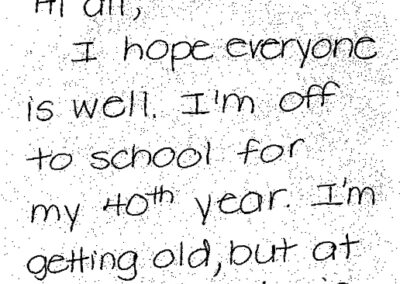 Hi all,
I hope everyone
is well. I'm off
to school for
my 40th year. I'm
getting old, but at